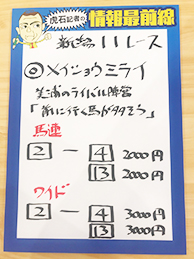 虎石記者の
情報最前線
新潟11レース
◎メイショウミライ
美浦のライバル陣営
「前に行く馬が多そう」
馬連
2 — 4 2000円
13 2000円
ワイド
2 — 4 3000円
13 3000円